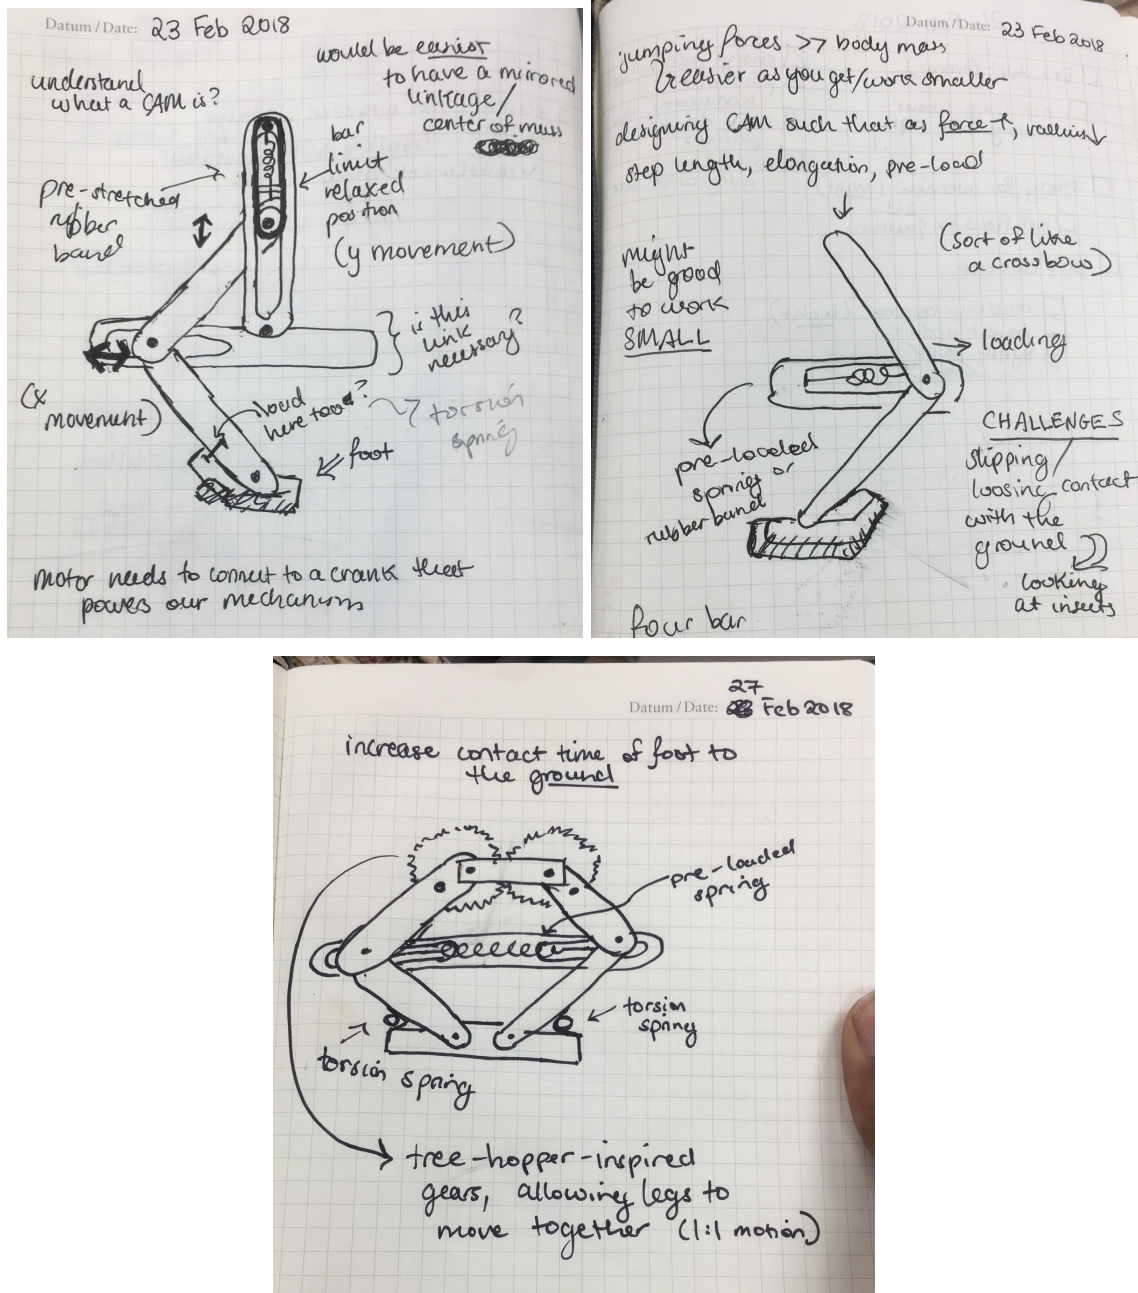 Datum / Date: 23 Feb 2018
understand
what a CAM is?
would be easiest
to have a mirrored
linkage/
center of mass
pre-stretched
rubber
band
bar
limit
relaxed
position
(y movement)
is this
link
necessary?
(x
movement)
load
here too?
torsion
spring
foot
motor needs to connect to a crank that
powers our mechanism
Datum / Date: 23 Feb 2018
jumping forces >> body mass
easier as you get/work smaller
designing CAM such that as force ↑, radius ↓
step length, elongation, pre-load
might
be good
to work
SMALL
(sort of like
a crossbow)
loading
pre-loaded
spring or
rubber band
CHALLENGES
slipping/
loosing contact
with the
ground
looking
at insects
four bar
27
Datum / Date: Feb 2018
increase contact time of foot to
the ground
pre-loaded
spring
torsion
spring
torsion spring
tree-hopper-inspired
gears, allowing legs to
move together (1:1 motion)